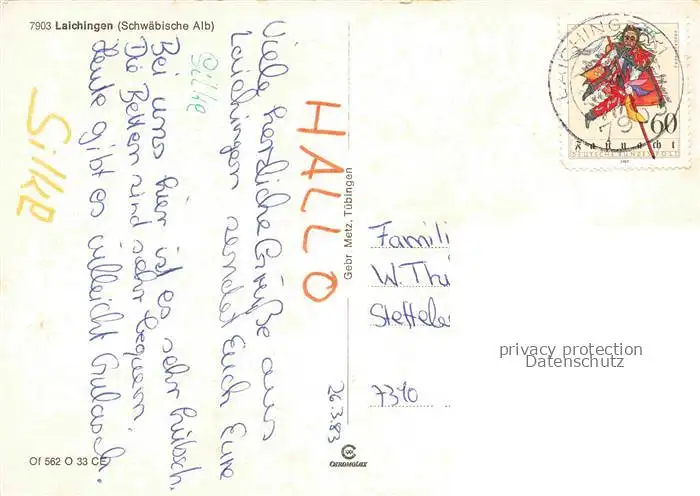 7903 Laichingen (Schwäbische Alb)
HALLO
Viele herzliche Grüße aus
Laichingen sendet Euch Eure
Silke
Bei uns hier ist es sehr hübsch.
Die Betten sind sehr bequem.
Heute gibt es villeicht Gulasch.
Silke
26.3.83
Gebr. Metz, Tübingen
LAICHINGEN
790
60
Fasnacht
DEUTSCHE BUNDESPOST
Famili
W. Thi
7340
privacy protection
Datenschutz
Of 562 O 33 CE
CHROMOLUX